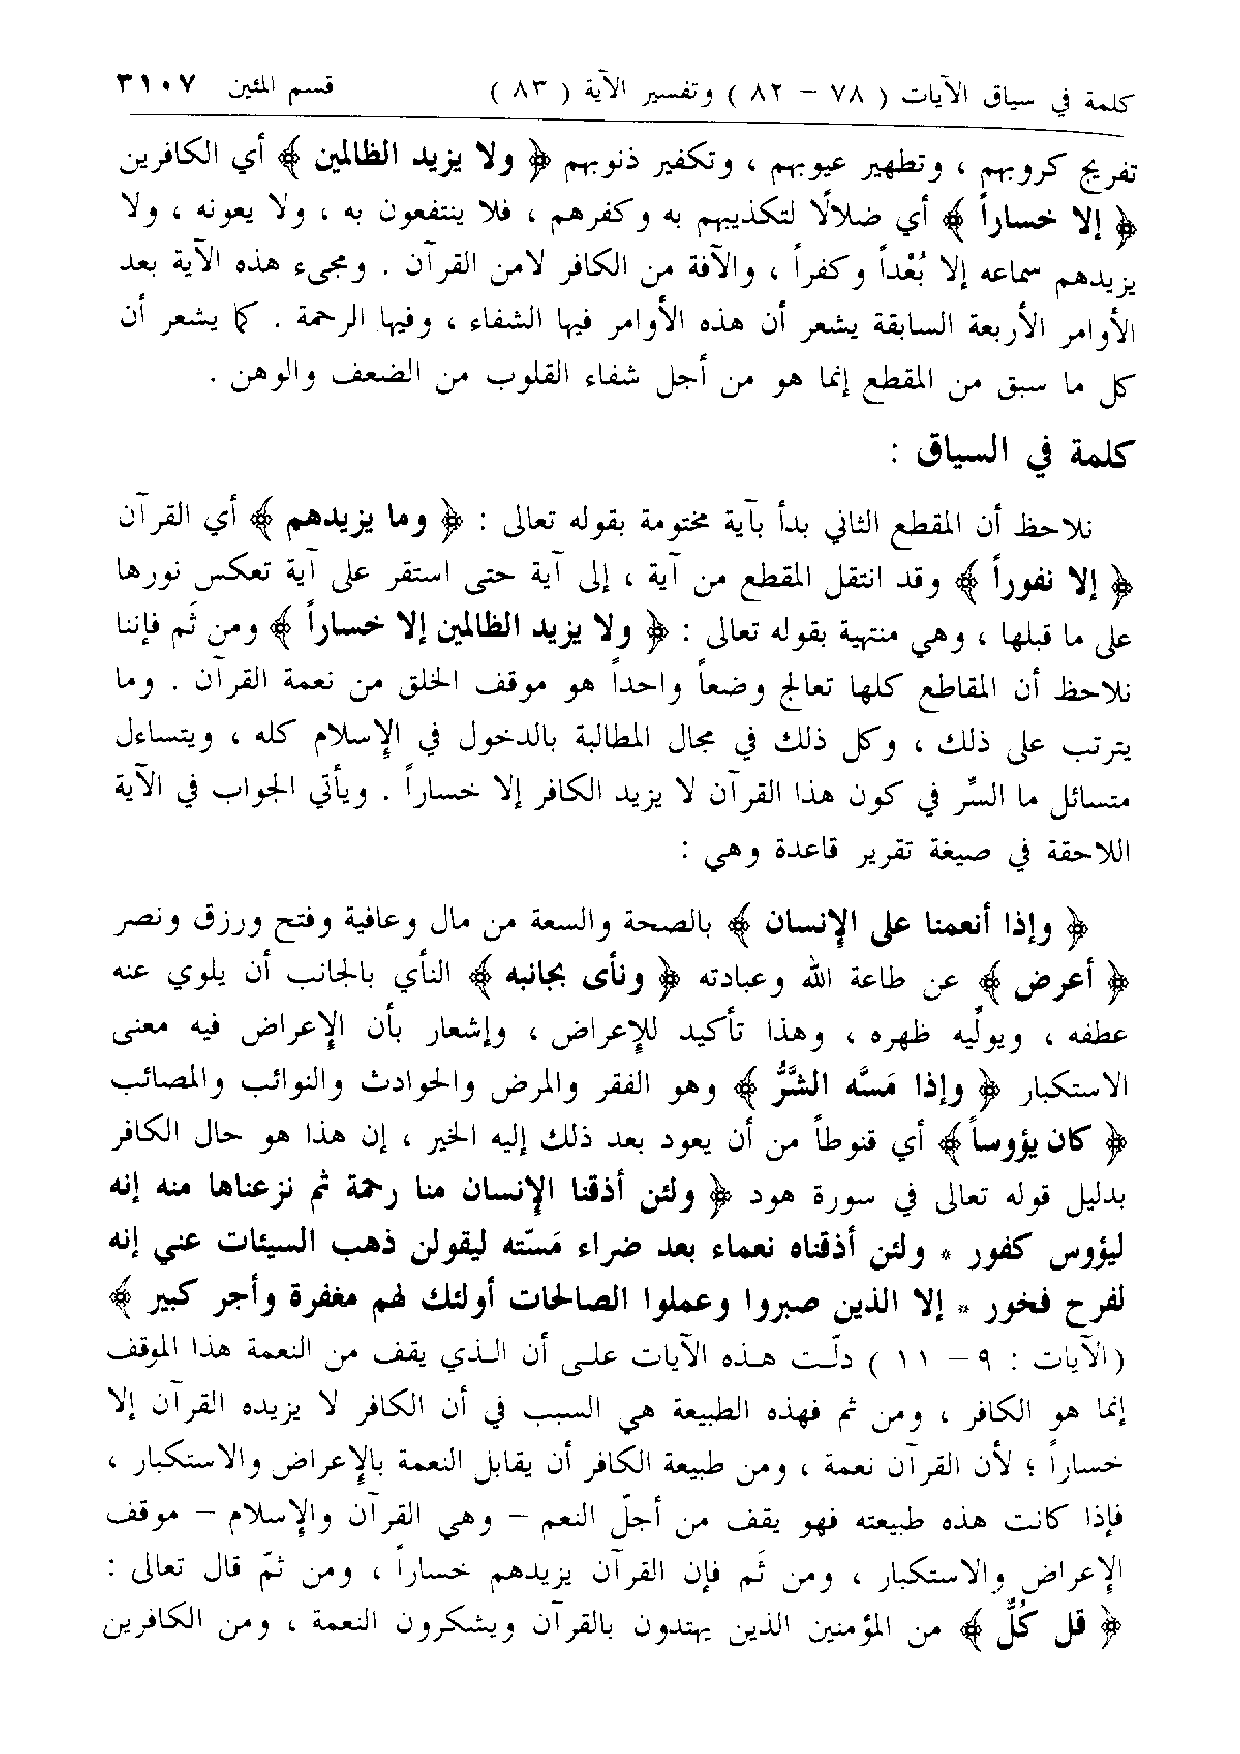 كلمة في سياق الآيات ( ٧٨ – ٨٢ ) وتفسير الآية ( ٨٣ ) قسم المئين ٣١٠٧
تفريج كروبهم ، وتطهير عيوبهم ، وتكفير ذنوبهم ﴿ ولا يزيد الظالمين ﴾ أي الكافرين
﴿ إلا خساراً ﴾ أي ضلالاً لتكذيبهم به وكفرهم ، فلا ينتفعون به ، ولا يعونه ، ولا
يزيدهم سماعه إلا بُعْداً وكفراً ، والآفة من الكافر لامن القرآن . ومجىء هذه الآية بعد
الأوامر الأربعة السابقة يشعر أن هذه الأوامر فيها الشفاء ، وفيها الرحمة . كما يشعر أن
كل ما سبق من المقطع إنما هو من أجل شفاء القلوب من الضعف والوهن .
كلمة في السياق :
نلاحظ أن المقطع الثاني بدأ بآية مختومة بقوله تعالى : ﴿ وما يزيدهم ﴾ أي القرآن
﴿ إلا نفوراً ﴾ وقد انتقل المقطع من آية ، إلى آية حتى استقر على آية تعكس نورها
على ما قبلها ، وهي منتهية بقوله تعالى : ﴿ ولا يزيد الظالمين إلا خساراً ﴾ ومن ثَم فإننا
نلاحظ أن المقاطع كلها تعالج وضعاً واحداً هو موقف الخلق من نعمة القرآن . وما
يترتب على ذلك ، وكل ذلك في مجال المطالبة بالدخول في الإسلام كله ، ويتساءل
متسائل ما السِّر في كون هذا القرآن لا يزيد الكافر إلا خساراً . ويأتي الجواب في الآية
اللاحقة في صيغة تقرير قاعدة وهي :
﴿ وإذا أنعمنا على الإنسان ﴾ بالصحة والسعة من مال وعافية وفتح ورزق ونصر
﴿ أعرض ﴾ عن طاعة الله وعبادته ﴿ ونأى بجانبه ﴾ النأي بالجانب أن يلوي عنه
عطفه ، ويولّيه ظهره ، وهذا تأكيد للإعراض ، وإشعار بأن الإعراض فيه معنى
الاستكبار ﴿ وإذا مَسَّه الشَّرُّ ﴾ وهو الفقر والمرض والحوادث والنوائب والمصائب
﴿ كان يؤوساً ﴾ أي قنوطاً من أن يعود بعد ذلك إليه الخير ، إن هذا هو حال الكافر
بدليل قوله تعالى في سورة هود ﴿ ولئن أذقنا الإنسان منا رحمة ثم نزعناها منه إنه
ليؤوس كفور * ولئن أذقناه نعماء بعد ضراء مَسّته ليقولن ذهب السيئات عني إنه
لفرح فخور * إلا الذين صبروا وعملوا الصالحات أولئك لهم مغفرة وأجر كبير ﴾
(الآيات : ٩ – ١١ ) دلّت هذه الآيات على أن الذي يقف من النعمة هذا الموقف
إنما هو الكافر ، ومن ثم فهذه الطبيعة هي السبب في أن الكافر لا يزيده القرآن إلا
خساراً ؛ لأن القرآن نعمة ، ومن طبيعة الكافر أن يقابل النعمة بالإعراض والاستكبار ،
فإذا كانت هذه طبيعته فهو يقف من أجلّ النعم – وهي القرآن والإسلام – موقف
الإعراض والاستكبار ، ومن ثَم فإن القرآن يزيدهم خساراً ، ومن ثمّ قال تعالى :
﴿ قل كُلٌّ ﴾ من المؤمنين الذين يهتدون بالقرآن ويشكرون النعمة ، ومن الكافرين